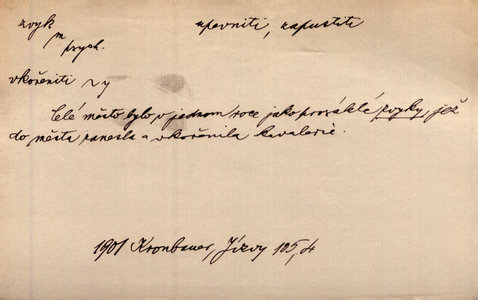 zvyk
m
psych.
upevniti, zapustiti
vkořeniti ~y
Celé město bylo v jednom roce jako prosáklé zvyky, jež
do města zanesla a vkořenila kavalerie.
1901 Kronbauer, Jizvy 105, 4